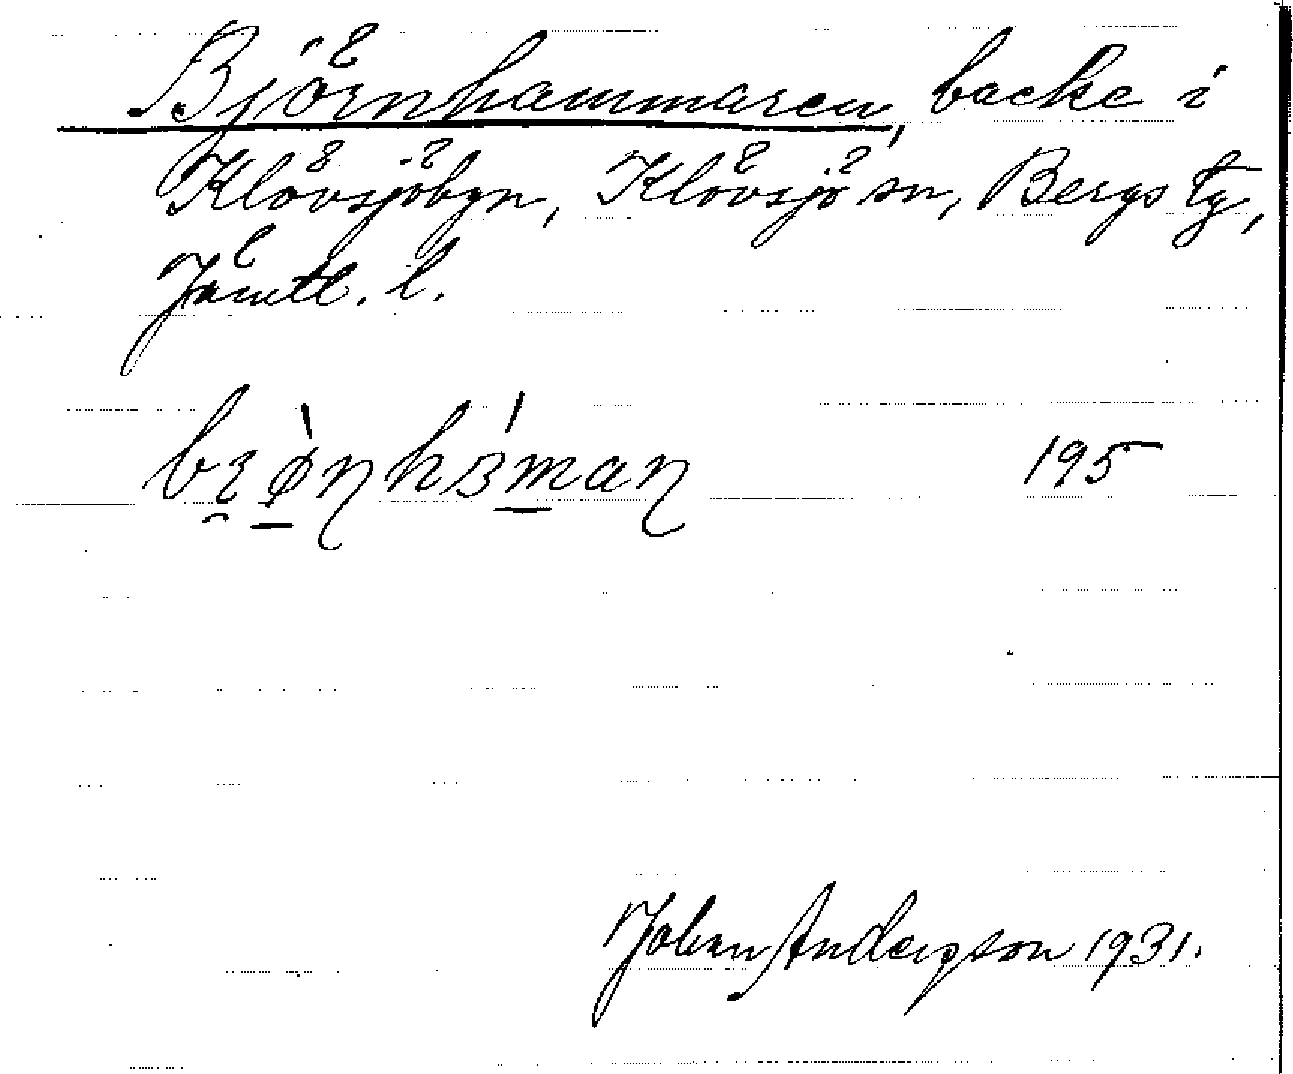 Björnhammaren, backe i
Klövsjöbyn, Klövsjö sn, Bergs tg,
Jämtl. l.
195
Johan Anderson 1931.